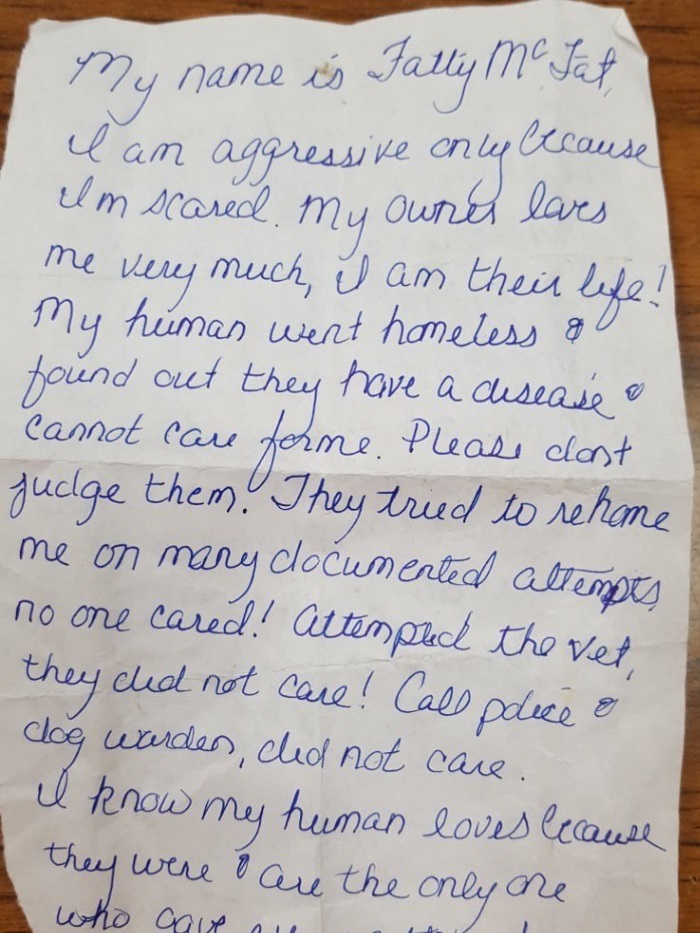 My name is Fatty McFat,
I am aggressive only because
I'm scared. My owner loves
me very much, I am their life!
My human went homeless &
found out they have a disease &
cannot care for me. Please dont
judge them. They tried to rehome
me on many documented attempts,
no one cared! Attempted the vet,
they did not care! Call police &
dog warden, did not care.
I know my human loves because
they were & are the only one
who gave